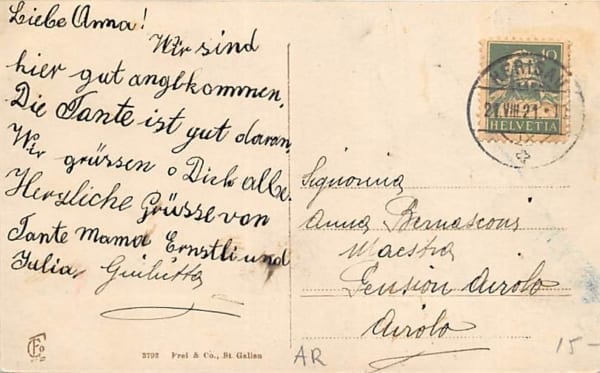 Liebe Anna!
Wir sind
hier gut anglkommen,
Die Tante ist gut daran,
Wir grüssen Dich alle.
Herzliche Grüsse von
Tante Mama Ernstli und
Julia Giulitta
10
HERISAU
21.VIII.21
HELVETIA
Signorina
Anna Bernasconi
Maestra
Pension Airolo
Airolo
3792 Frei & Co., St. Gallen
AR
15-